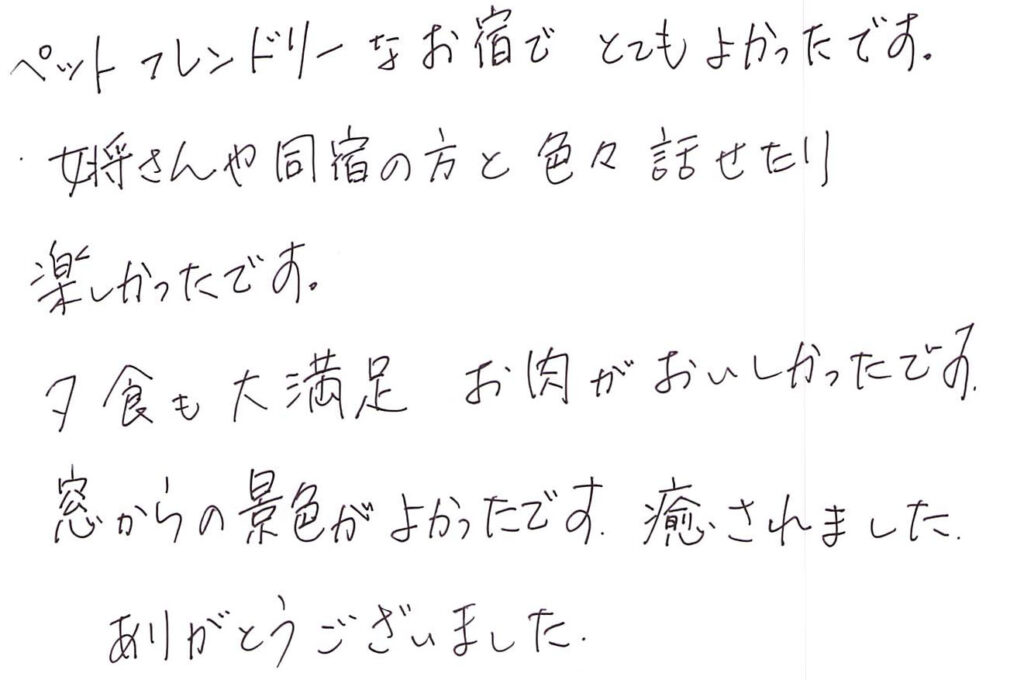 ペットフレンドリーなお宿で とてもよかったです。
女将さんや同宿の方と色々話せたり
楽しかったです。
夕食も大満足 お肉がおいしかったです.
窓からの景色がよかったです. 癒されました.
ありがとうございました.